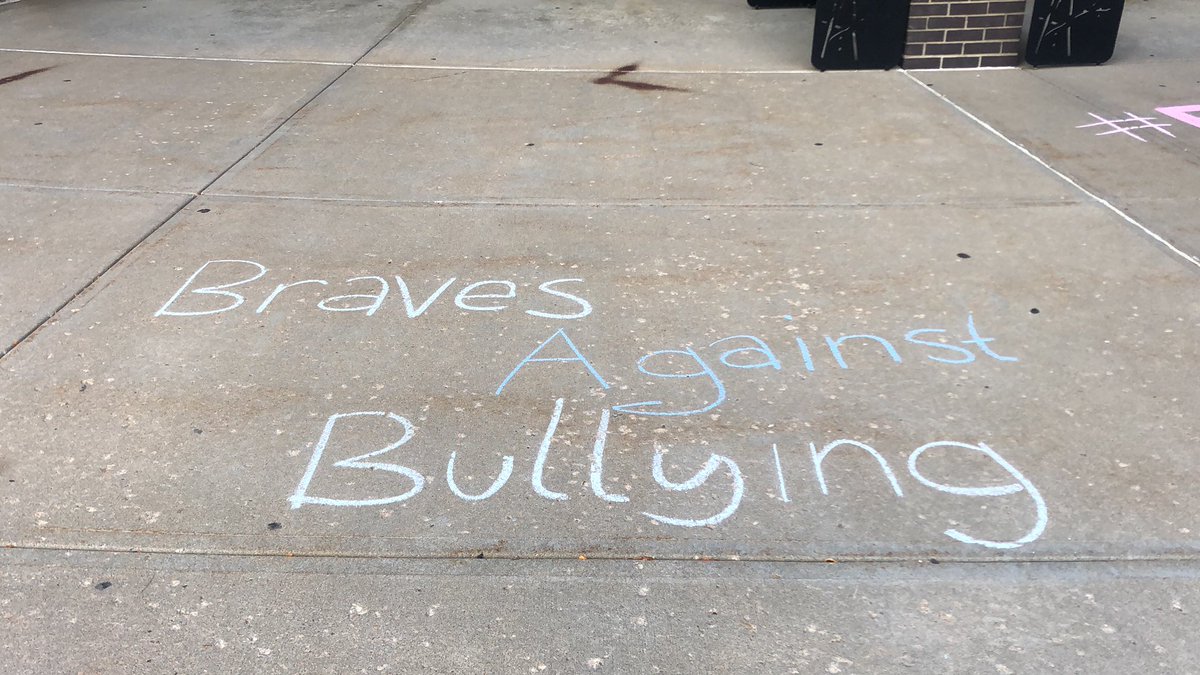 #
Braves
Against
Bullying